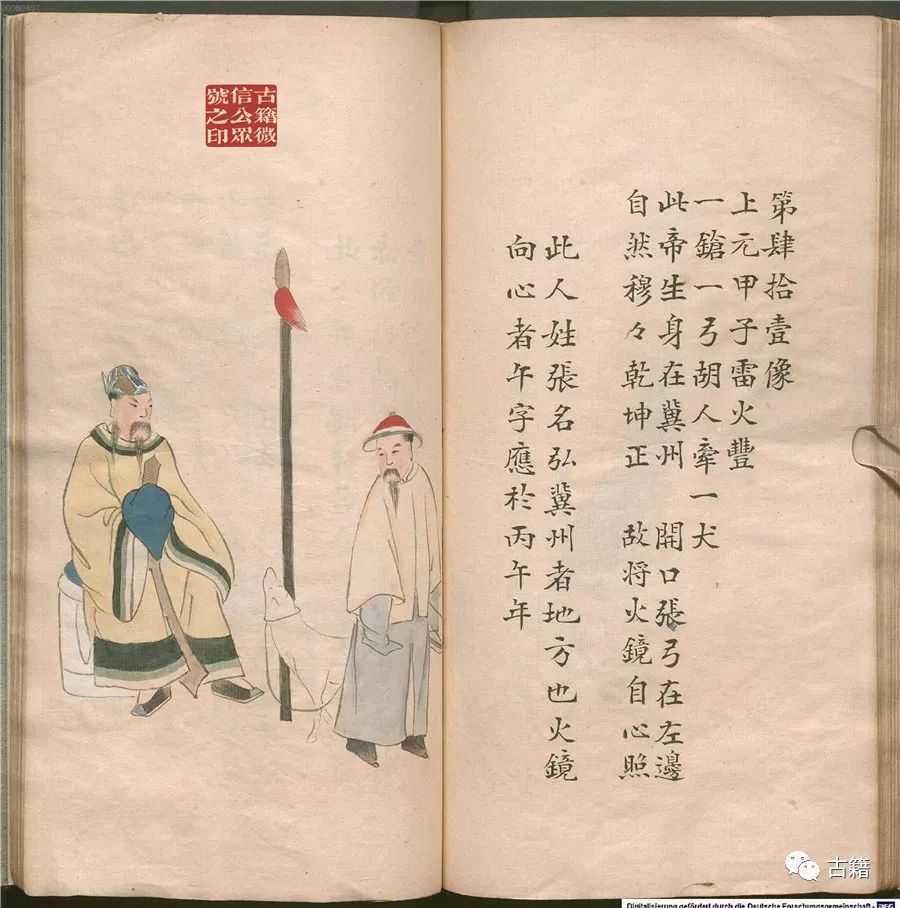 第肆拾壹像
上元甲子雷火豐
一鎗一弓胡人牽一犬
此帝生身在冀州　開口張弓在左邊
自然穆々乾坤正　故将火鏡自心照
此人姓張名弘冀州者地方也火鏡
向心者午字應於丙午年
古籍微
信公眾
號之印
00360607
古籍
Digitalisierung gefördert durch die Deutsche Forschungsgemeinschaft - DFG